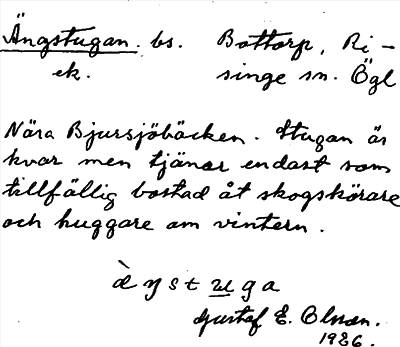 Ängstugan. bs. Bottorp, Ri-
ek. singe sn. Ögl
Nära Bjursjöbäcken. Stugan är
kvar men tjänar endast som
tillfällig bostad åt skogskörare
och huggare om vintern.
Gustaf E. Olsson.
1926.